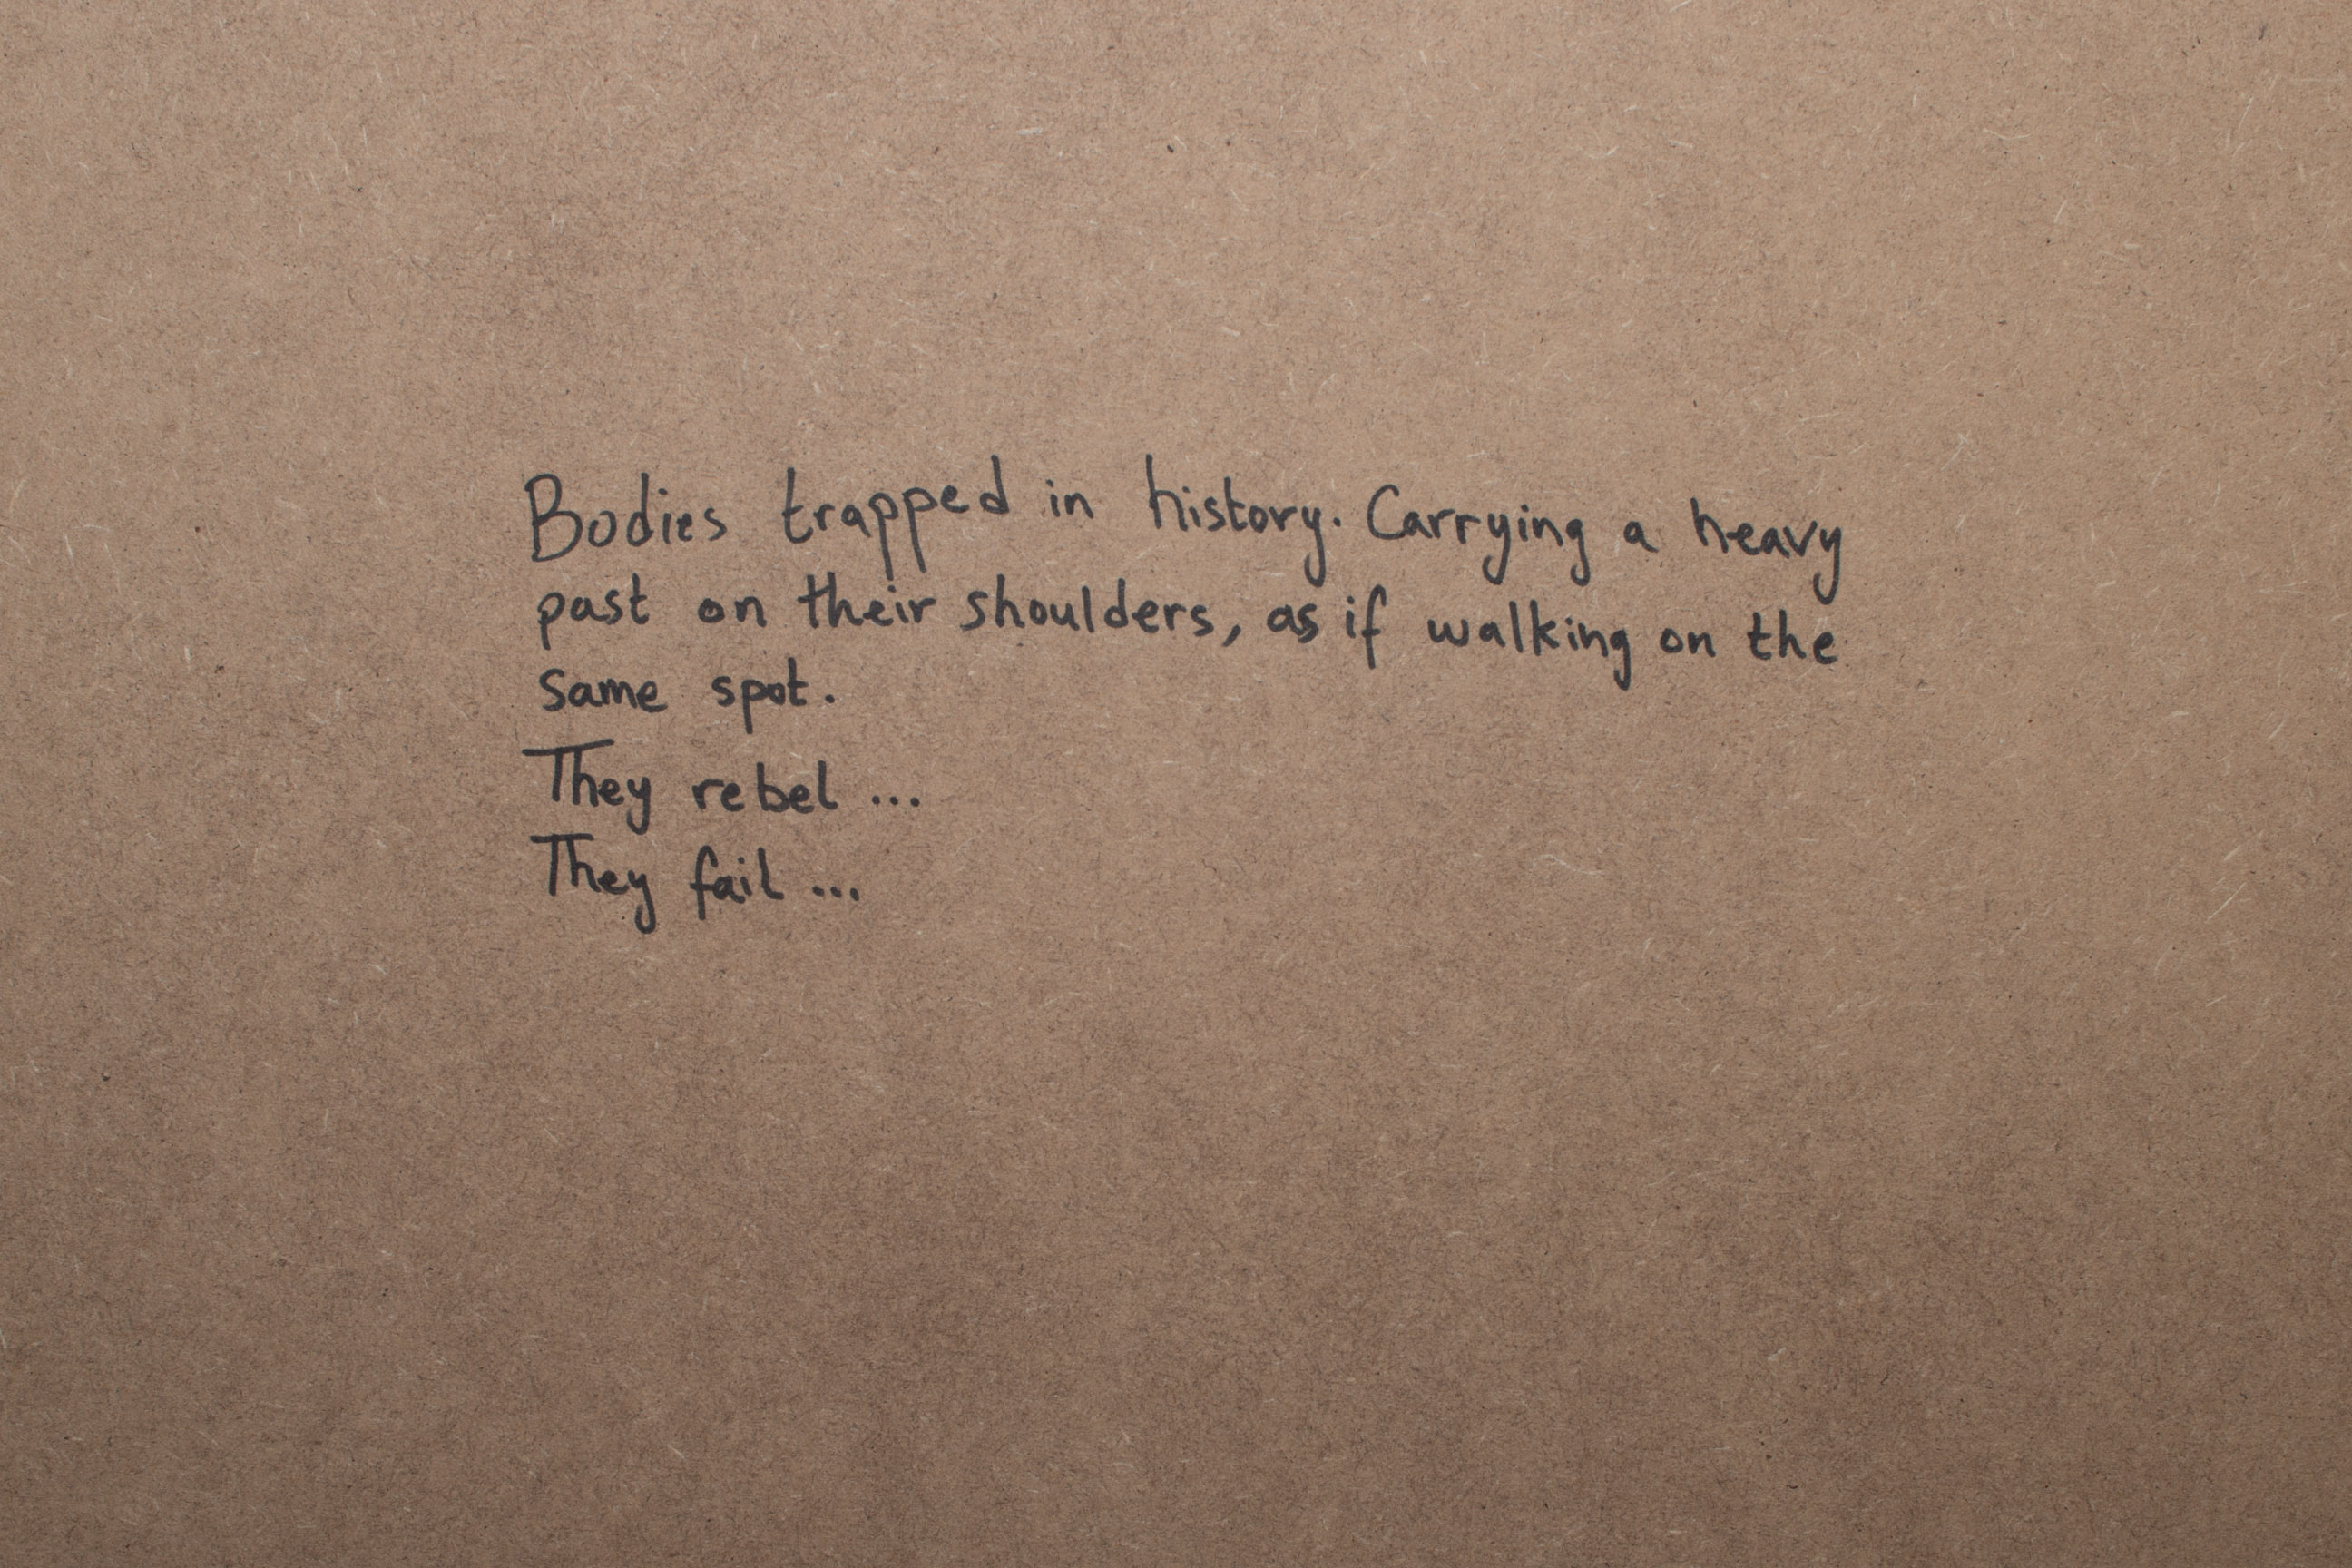 Bodies trapped in history. Carrying a heavy
past on their shoulders, as if walking on the
same spot.
They rebel ...
They fail ...